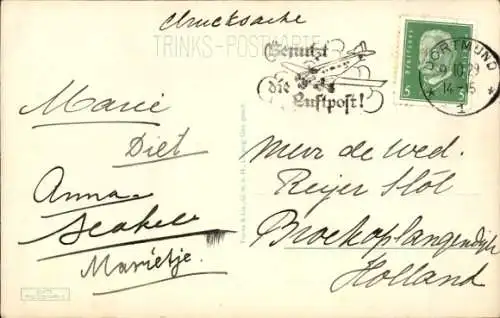 Drucksache
TRINKS-POSTKARTE
Benutzt
die
Luftpost!
DORTMUND
9.10.29
14-15
1
5 5
Marie
Diet
Anna
Marietje
Mevr de Wed.
Reijer Slot
Broekoplangendijk
Holland
Trinks & Co., G.m.b.H., Leipzig